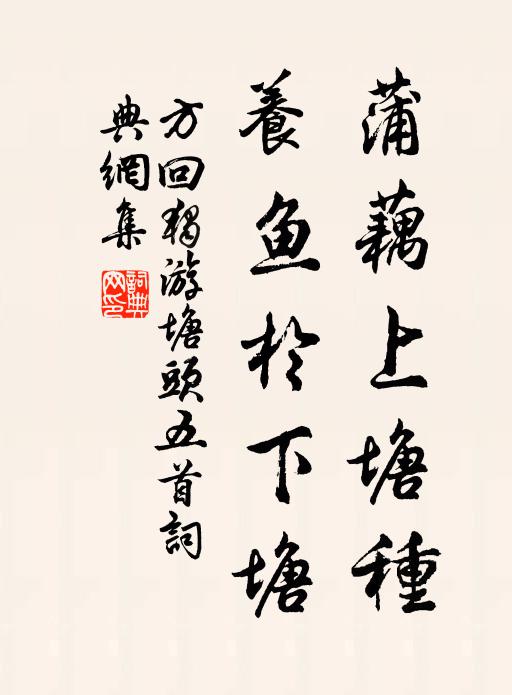 蒲藕上塘種
養鱼於下塘
方回獨游塘頭五首詞
典網集
詞典網印